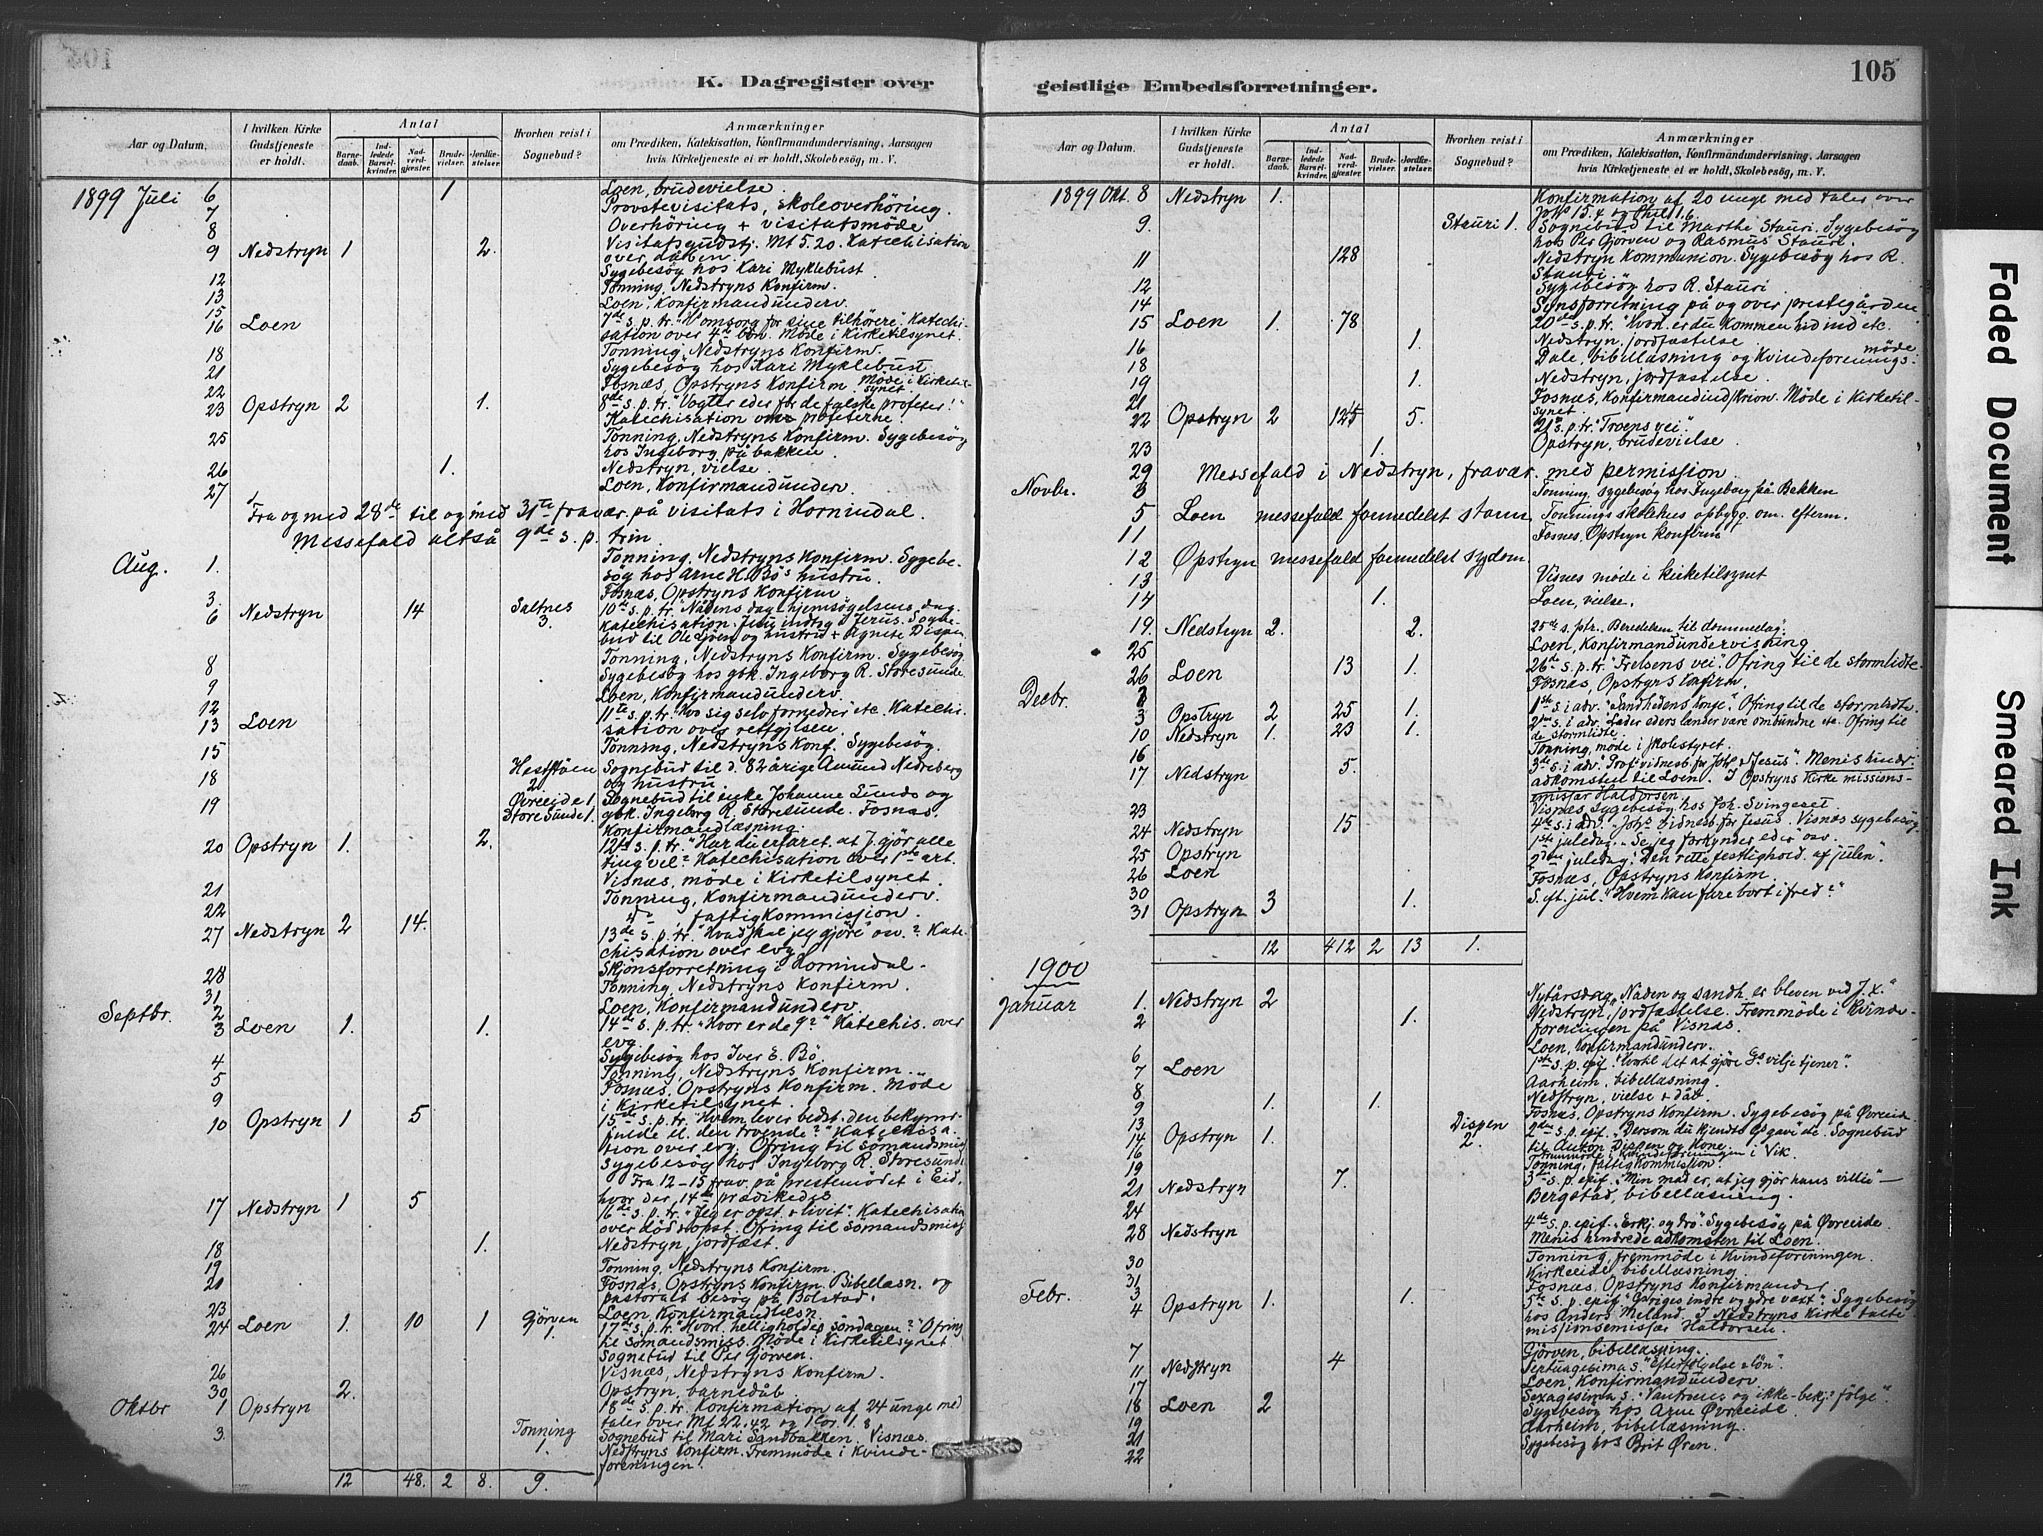 K. Dagregister over
Aar og Datum.
I hvilken Kirke Gudstjeneste er holdt.
Antal
Barnedaab.
Indledede Barselkvinder.
Nadverdgjæster.
Brudevielser.
Jordfæstelser.
Hvorhen reist i Sognebud?
Anmærkninger
om Prædiken, Katekisation, Konfirmandundervisning, Aarsagen
hvis Kirketjeneste ei er holdt, Skolebesøg, m. V.
1899 Juli 6 1 Loen, brudevielse.
7 Provstevisitats, skoleoverhöring.
8 Overhöring + visitatsmöde
9 Nedstryn 1 2. Visitatsgudstj. Mt 5.20. Katechisation
over dåben.
Sygebesög hos Kari Myklebust.
12 Tonning, Nedstryns Konfirm.
13 Loen, Konfirmandunderv.
15
16 Loen 7de s. p. tr. "H omsorg for sine tilhörere". Katechisation
over 4de bön. Möde i Kirketilsynet.
18 Tonning, Nedstryns Konfirm.
21 Sygebesög hos Kari Myklebust.
22 Fosnæs, Opstryns Konfirm. Möde i Kirketilsynet
23 Opstryn 2 1. 8de s. p. tr. "Vogter eder for de falske profeter!"
Katechisation over profeterne.
25 Tonning, Nedstryns Konfirm. Sygebesög
hos Ingeborg på bakken.
26 1. Nedstryn, vielse.
27 Loen, Konfirmandunderv.
Fra og med 28de til og med 31te fravær. på visitats i Hornindal.
Messefald altså 9de s. p. trin.
Aug. 1. Tonning, Nedstryns Konfirm. Sygebesög
hos Arne H. Bö's hustru.
3. Fosnæs, Opstryns Konfirm.
6 Nedstryn 14 Saltnes 3. 10de s. p. tr. "Nådens dag, hjemsögelsens dag.
Katechisation. Jesu indtog i Jerus. Sognebud
til Ole Loen og hustru + Agnete Dispen.
8 Tonning, Nedstryns Konfirm. Sygebesög
9 Sygebesög hos gbk. Ingeborg R. Storesunde.
12 Loen, Konfirmandunderv.
13 Loen 11te s. p. tr. "Hvo sig selv fornedrer" etc. Katechisation
over retfgjelsen.
15 Tonning, Nedstryns Konf. Sygebesög.
18 Hestflöen 2. Sognebud til d. 82 årige Amund Nedreberg
og hustru.
19 Övreeide 1, Sognebud til enke Johanne Lunds og
Storesunde 1. gbk. Ingeborg R. Storesunde. Fosnæs,
Konfirmandlæsning.
20 Opstryn 1. 2. 12te s. p. tr. "Har du erfaret, at J. gjör alle
ting vel?" Katechisation over 1ste art.
21 Visnæs, möde i Kirketilsynet.
22 Tonning, Konfirmandunderv.
do fattigkommission.
27 Nedstryn 2 14. 13de s. p. tr. "Hvad skal jeg gjöre" osv.? Katechisation
over evg.
28 Skjönsforretning i Hornindal.
31 Tonning, Nedstryns Konfirm.
Septbr. 2 Loen, Konfirmandunderv.
3 Loen 1. 1. 14de s. p. tr. "Hvor er de 9?" Katechis. over
evg.
4 Sygebesög hos Iver E. Bö.
5 Tonning, Nedstryns Konfirm.
9 Fosnæs, Opstryns Konfirm. Möde
i Kirketilsynet.
10 Opstryn 1 5 15de s. p. tr. "Hvem lever bedst: den bekymrfulde
el. den troende?" Katechisation
over evg. Ofring til sömandsmiss.
Sygebesög hos Ingeborg R. Storesunde
Fra 12–15 frav. på prestemödet i Eid,
hvor der 14de prædikedes
17 Nedstryn 1 5 16de s. p. tr. "Jeg er opst. + livit". Katechisation
over död + opst. Ofring til sömandsmiss.
18 1. Nedstryn, jordfæst.
19 Tonning, Nedstryns Konfirm.
20 Fosnæs, Opstryns Konfirm. Bibellæsn. og
pastoralt besög på Bolstad.
23 Loen, Konfirmandlæsn.
24 Loen 1. 10 1 Gjörven 1. 17de s. p. tr. "Hvorl. helligholdes söndagen?" Ofring
til sömandsmiss. Möde i Kirketilsynet
Sognebud til Per Gjörven.
26 Visnæs, Nedstryns Konfirm.
30 2. Opstryn, barnedåb.
Oktbr 1 Opstryn 18de s. p. tr. Konfirmation af 24 unge med
taler over Mt 22.42 og 1 Cor. 1.8
3. Tonning 1. Sognebud til Mari Sandbakken. Visnæs.
Nedstryns Konfirm. Fremmöde i Kvindeforeningen.
12 48. 2 8. 9.
geistlige Embedsforretninger.
105
Aar og Datum.
I hvilken Kirke Gudstjeneste er holdt.
Antal
Barnedaab.
Indledede Barselkvinder.
Nadverdgjæster.
Brudevielser.
Jordfæstelser.
Hvorhen reist i Sognebud?
Anmærkninger
om Prædiken, Katekisation, Konfirmandundervisning, Aarsagen
hvis Kirketjeneste ei er holdt, Skolebesøg, m. V.
1899 Okt. 8 Nedstryn 1. Konfirmation af 20 unge med taler over
Joh. 15.4 og Phil. 1.6
9. Stauri 1. Sognebud til Marthe Stauri. Sygebesög
hos Per Gjörven og Rasmus Stauri.
11 128 Nedstryn Kommunion. Sygebesög hos R.
Stauri.
12 Sygebesög hos R. Stauri.
14 Synsforretning på og over prestegården
15 Loen 1. 78 20de s. p. tr. "Hvorl. er du kommen hid ind" etc.
16 1. Nedstryn, jordfæstelse.
18 Dale, bibellæsning og Kvindeforenings-möde
19 1. Nedstryn, jordfæstelse.
21 Fosnæs, Konfirmandind/krion. Möde i Kirketilsynet.
22 Opstryn 2 5. 21de s. p. tr. "Troens vei".
23 1. Opstryn, brudevielse.
29 Messefald i Nedstryn, fravær. med permission.
Novbr. 3 Tonning, sygebesög hos Ingeborg på Bakken
5 Loen messefald formedelst storm Tonnings skolehus opbygg. om. efterm.
11 Fosnes, Opstryn konfirm
12 Opstryn messefald formedelst sygdom
13 Visnes möde i kirketilsynet
14 1. Loen, vielse.
19. Nedstryn 2. 2. 25de s. p. tr. "Beredelsen til dommedag".
25 Loen, Konfirmandundervisning.
26 Loen 13 1. 26de s. p. tr. "Frelsens vei". Ofring til de stormlidte.
Decbr. 2 Fosnæs, Opstryns Konfirm.
3 Opstryn 2 25 1. 1ste s. i adv. "Sandhedens konge". Ofring til de stormlidte.
10 Nedstryn 1. 23 1. 2den s. i adv. "Lader eders lænder være ombundne etc. Ofring til
de stormlidte.
16 Tonning, möde i skolestyret.
17 Nedstryn 5. 3de s. i adv. "Prof. vidnesb. fr Joh. + Jesus". Menis hindr
adkomsten til Loen. I Opstryns Kirke missionsemissær
Haldorsen.
23 Visnæs, sygebesög hos Joh. Svingeset.
24 Nedstryn 15 4de s. i adv. "Joh's vidnesb. fr Jesus. Visnæs sygebesög.
25 Opstryn 1ste juledag. "Se jeg forkynder eder" osv.
26 Loen 2den juledag. "Den rette festlighold. af julen".
30 Fosnæs, Opstryns Konfirm.
31 Opstryn 3 1. S. eft. jul. "Hvem kan fare bort i fred?"
12 412 2 13 1.
1900
Januar 1. Nedstryn 2 Nytårsdag, "Nåden og sandh. er bleven ved J. X."
2 1. Nedstryn, jordfæstelse. Fremmöde i Kvindeforeningen
på Visnæs.
6 Loen, Konfirmandunderv.
7 Loen 1ste s. p. epif. "Hvortil det at gjöre Gs vilje tjener".
8 Aarheim, bibellæsning.
9 1. 1. Nedstryn, vielse + dåb.
13 Fosnæs, Opstryns Konfirm. Sygebesög på Övreeide
14 Opstryn 1. Dispen 2. 2den s. p. epif. "Dersom du kjendte Gs gave" de. Sognebud
til Anton Dispen og Kone.
16 Fremmöde i Kvindeforeningen i Vik.
19 Tonning, fattigkommission.
21 Nedstryn 7. 3de s. p. epif. "Min mad er, at jeg gjör hans villie" –
24 Bergstad, bibellæsning.
28 Nedstryn 4de s. p. epif. "Erkj. og trö". Sygebesög på Övreeide.
Menis hindrede adkomsten til Loen.
30 Tonning, fremmöde i Kvindeforeningen.
31 Kirkeeide, bibellæsning.
Febr. 3 Fosnæs, Opstryns Konfirmander
4 Opstryn 1. 1. 5te s. p. epif. "G. riges indre og ydre væxt". Sygebesög
hos Anders Meland. I Nedstryns Kirke talte
missionsemissær Haldorsen.
7 Gjörven, bibellæsning.
11 Nedstryn 4 Septuagesima s. "Efterfölgelse + lön".
17 Loen, Konfirmandunderv.
18 Loen 2 Sexagesima s. "Vantroens og ikke-bekj's fölge".
19 Sygebesög hos Arne Övreeide.
21 Aarheim, bibellæsning.
22 Sygebesög hos Brit Ören.
Faded Document
Smeared Ink